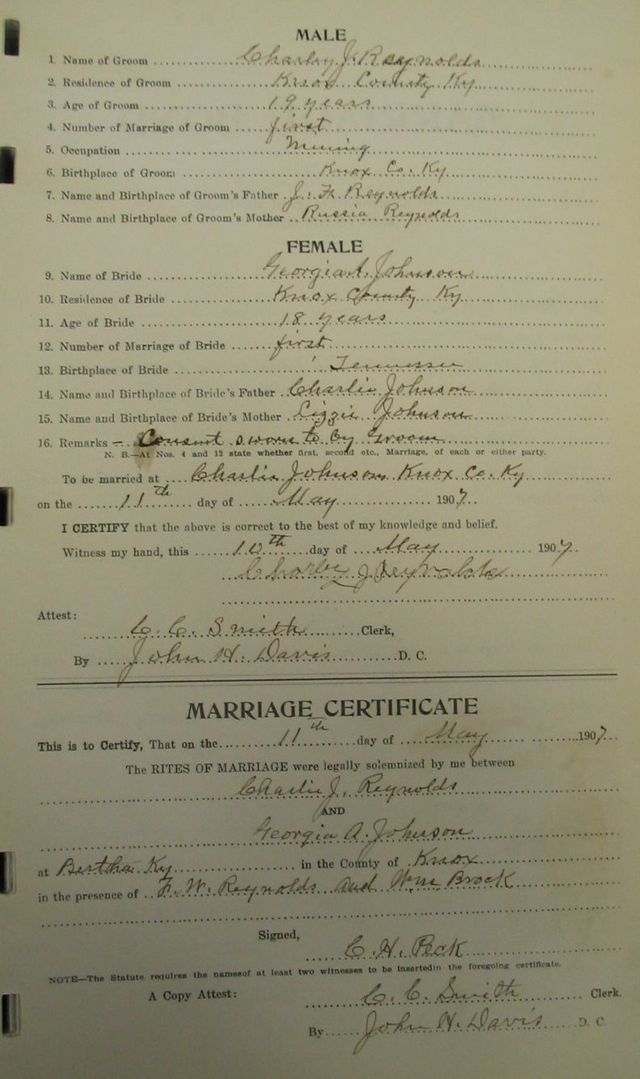 MALE
1. Name of Groom Charley J. Reynolds
2. Residence of Groom Knox County Ky
3. Age of Groom 19 years
4. Number of Marriage of Groom first
5. Occupation Mining
6. Birthplace of Groom Knox Co. Ky
7. Name and Birthplace of Groom's Father J. F. Reynolds
8. Name and Birthplace of Groom's Mother Russia Reynolds
FEMALE
9. Name of Bride Georgia A. Johnson
10. Residence of Bride Knox County Ky
11. Age of Bride 18 years
12. Number of Marriage of Bride first
13. Birthplace of Bride Tennessee
14. Name and Birthplace of Bride's Father Charlie Johnson
15. Name and Birthplace of Bride's Mother Lizzie Johnson
16. Remarks - Consent sworn to by Groom
N. B.—At Nos. 4 and 12 state whether first, second etc., Marriage, of each or either party.
To be married at Charlie Johnson Knox Co. Ky
on the 11th day of May 1907
I CERTIFY that the above is correct to the best of my knowledge and belief.
Witness my hand, this 10th day of May 1907.
Charley J Reynolds
Attest:
C. C. Smith Clerk,
By John H. Davis D. C.
MARRIAGE CERTIFICATE
This is to Certify, That on the 11th day of May 1907
The RITES OF MARRIAGE were legally solemnized by me between
Charlie J. Reynolds
AND
Georgia A. Johnson
at Bertha Ky in the County of Knox
in the presence of F. W. Reynolds and Wm Brock
Signed,
C. H. Peck
NOTE—The Statute requires the namesof at least two witnesses to be insertedin the foregoing certificate.
A Copy Attest: C. C. Smith Clerk.
By John H. Davis D. C